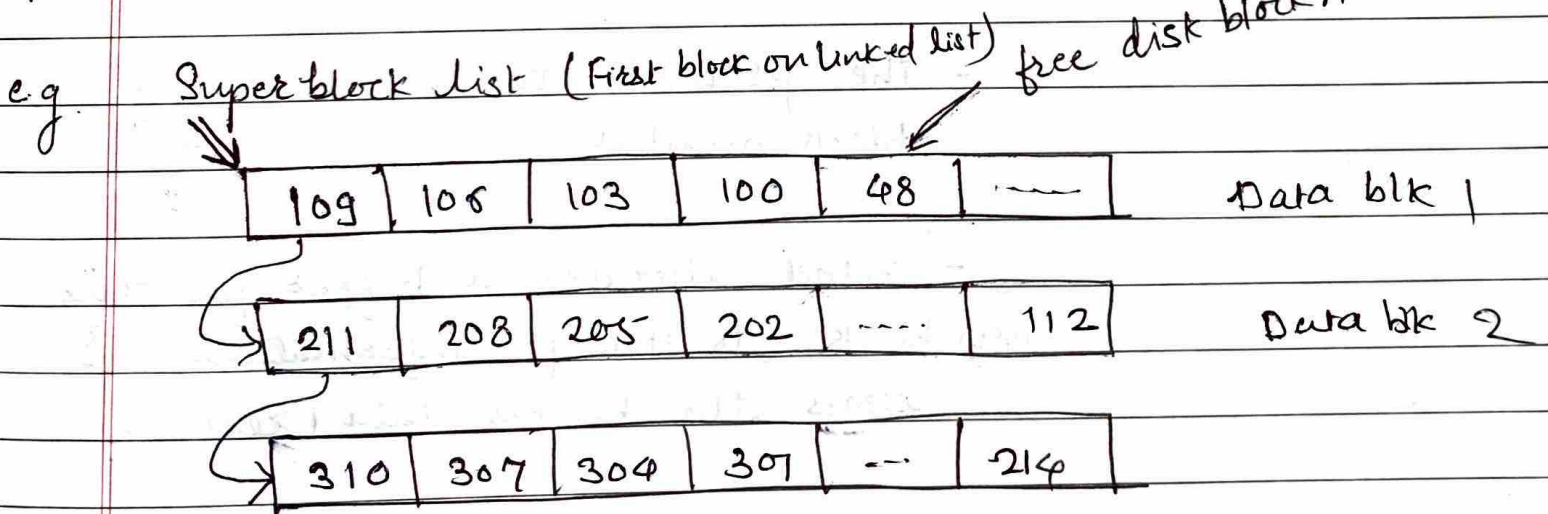 e.g. Super block list (First block on linked list) free disk block
109 106 103 100 48 ......
Data blk 1
211 208 205 202 .... 112
Data blk 2
310 307 304 301 --- 214